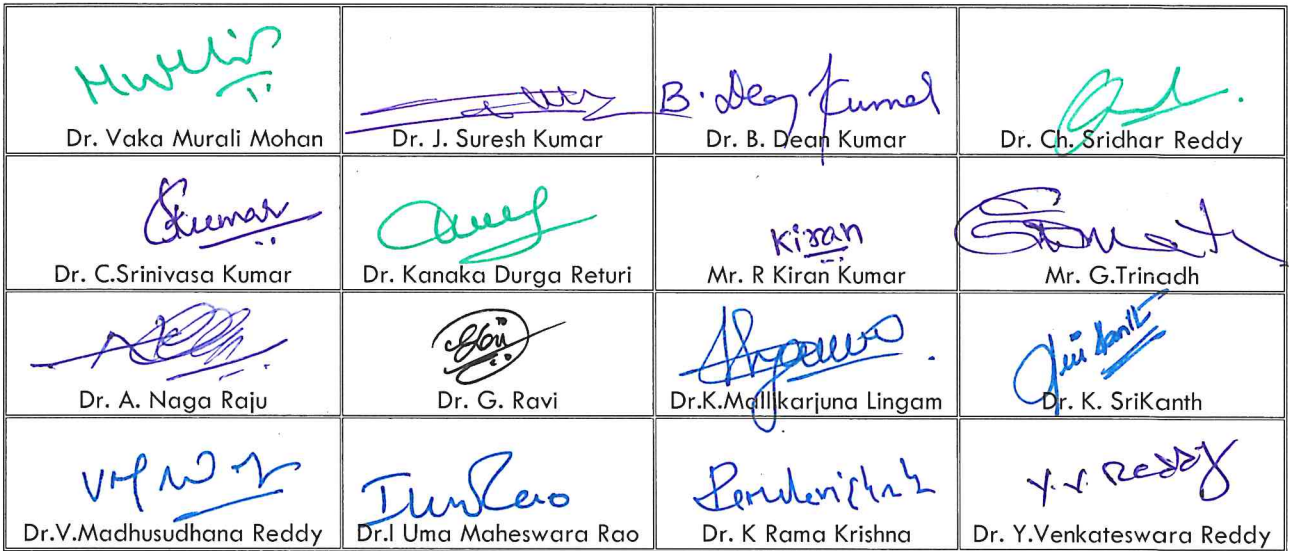 Dr. Vaka Murali Mohan
Dr. J. Suresh Kumar
B. Dean Kumar
Dr. B. Dean Kumar
Dr. Ch. Sridhar Reddy
Skumar
Dr. C.Srinivasa Kumar
Dr. Kanaka Durga Returi
Kiran
Mr. R Kiran Kumar
Mr. G.Trinadh
Dr. A. Naga Raju
Dr. G. Ravi
Dr.K.Mallikarjuna Lingam
Dr. K. SriKanth
Dr.V.Madhusudhana Reddy
Dr.I Uma Maheswara Rao
Dr. K Rama Krishna
Y.V. Reddy
Dr. Y.Venkateswara Reddy